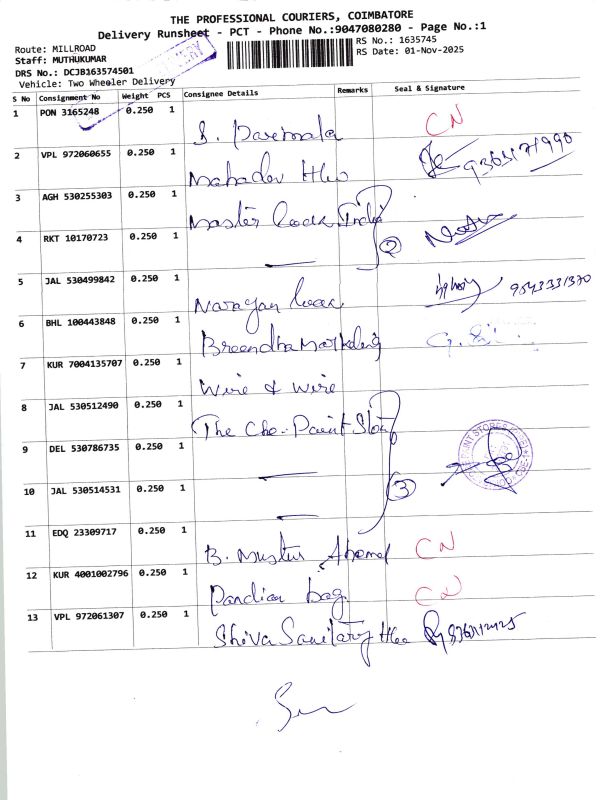 THE PROFESSIONAL COURIERS, COIMBATORE
Delivery Runsheet - PCT - Phone No.:9047080280 - Page No.:1
Route: MILLROAD
RS No.: 1635745
Staff: MUTHUKUMAR
RS Date: 01-Nov-2025
DRS No.: DCJB163574501
Vehicle: Two Wheeler Delivery
S No Consignment No Weight PCS Consignee Details Remarks Seal & Signature
1 PON 3165248 0.250 1 S. Parimala CN
2 VPL 972060655 0.250 1 Mahadev Hw
3 AGH 530255303 0.250 1 Master Lock India
4 RKT 10170723 0.250 1 — 2
5 JAL 530499842 0.250 1 Narayan Lock 9543331370
6 BHL 100443848 0.250 1 Breendha Marketing
7 KUR 7004135707 0.250 1 Wire & Wire
8 JAL 530512490 0.250 1 The Cbe. Paint Store
9 DEL 530786735 0.250 1 —
10 JAL 530514531 0.250 1 — 3
PAINT STORES
11 EDQ 23309717 0.250 1 B. Ahamed CN
12 KUR 4001002796 0.250 1 Pandian bag. CN
13 VPL 972061307 0.250 1 Shiva Sanitary